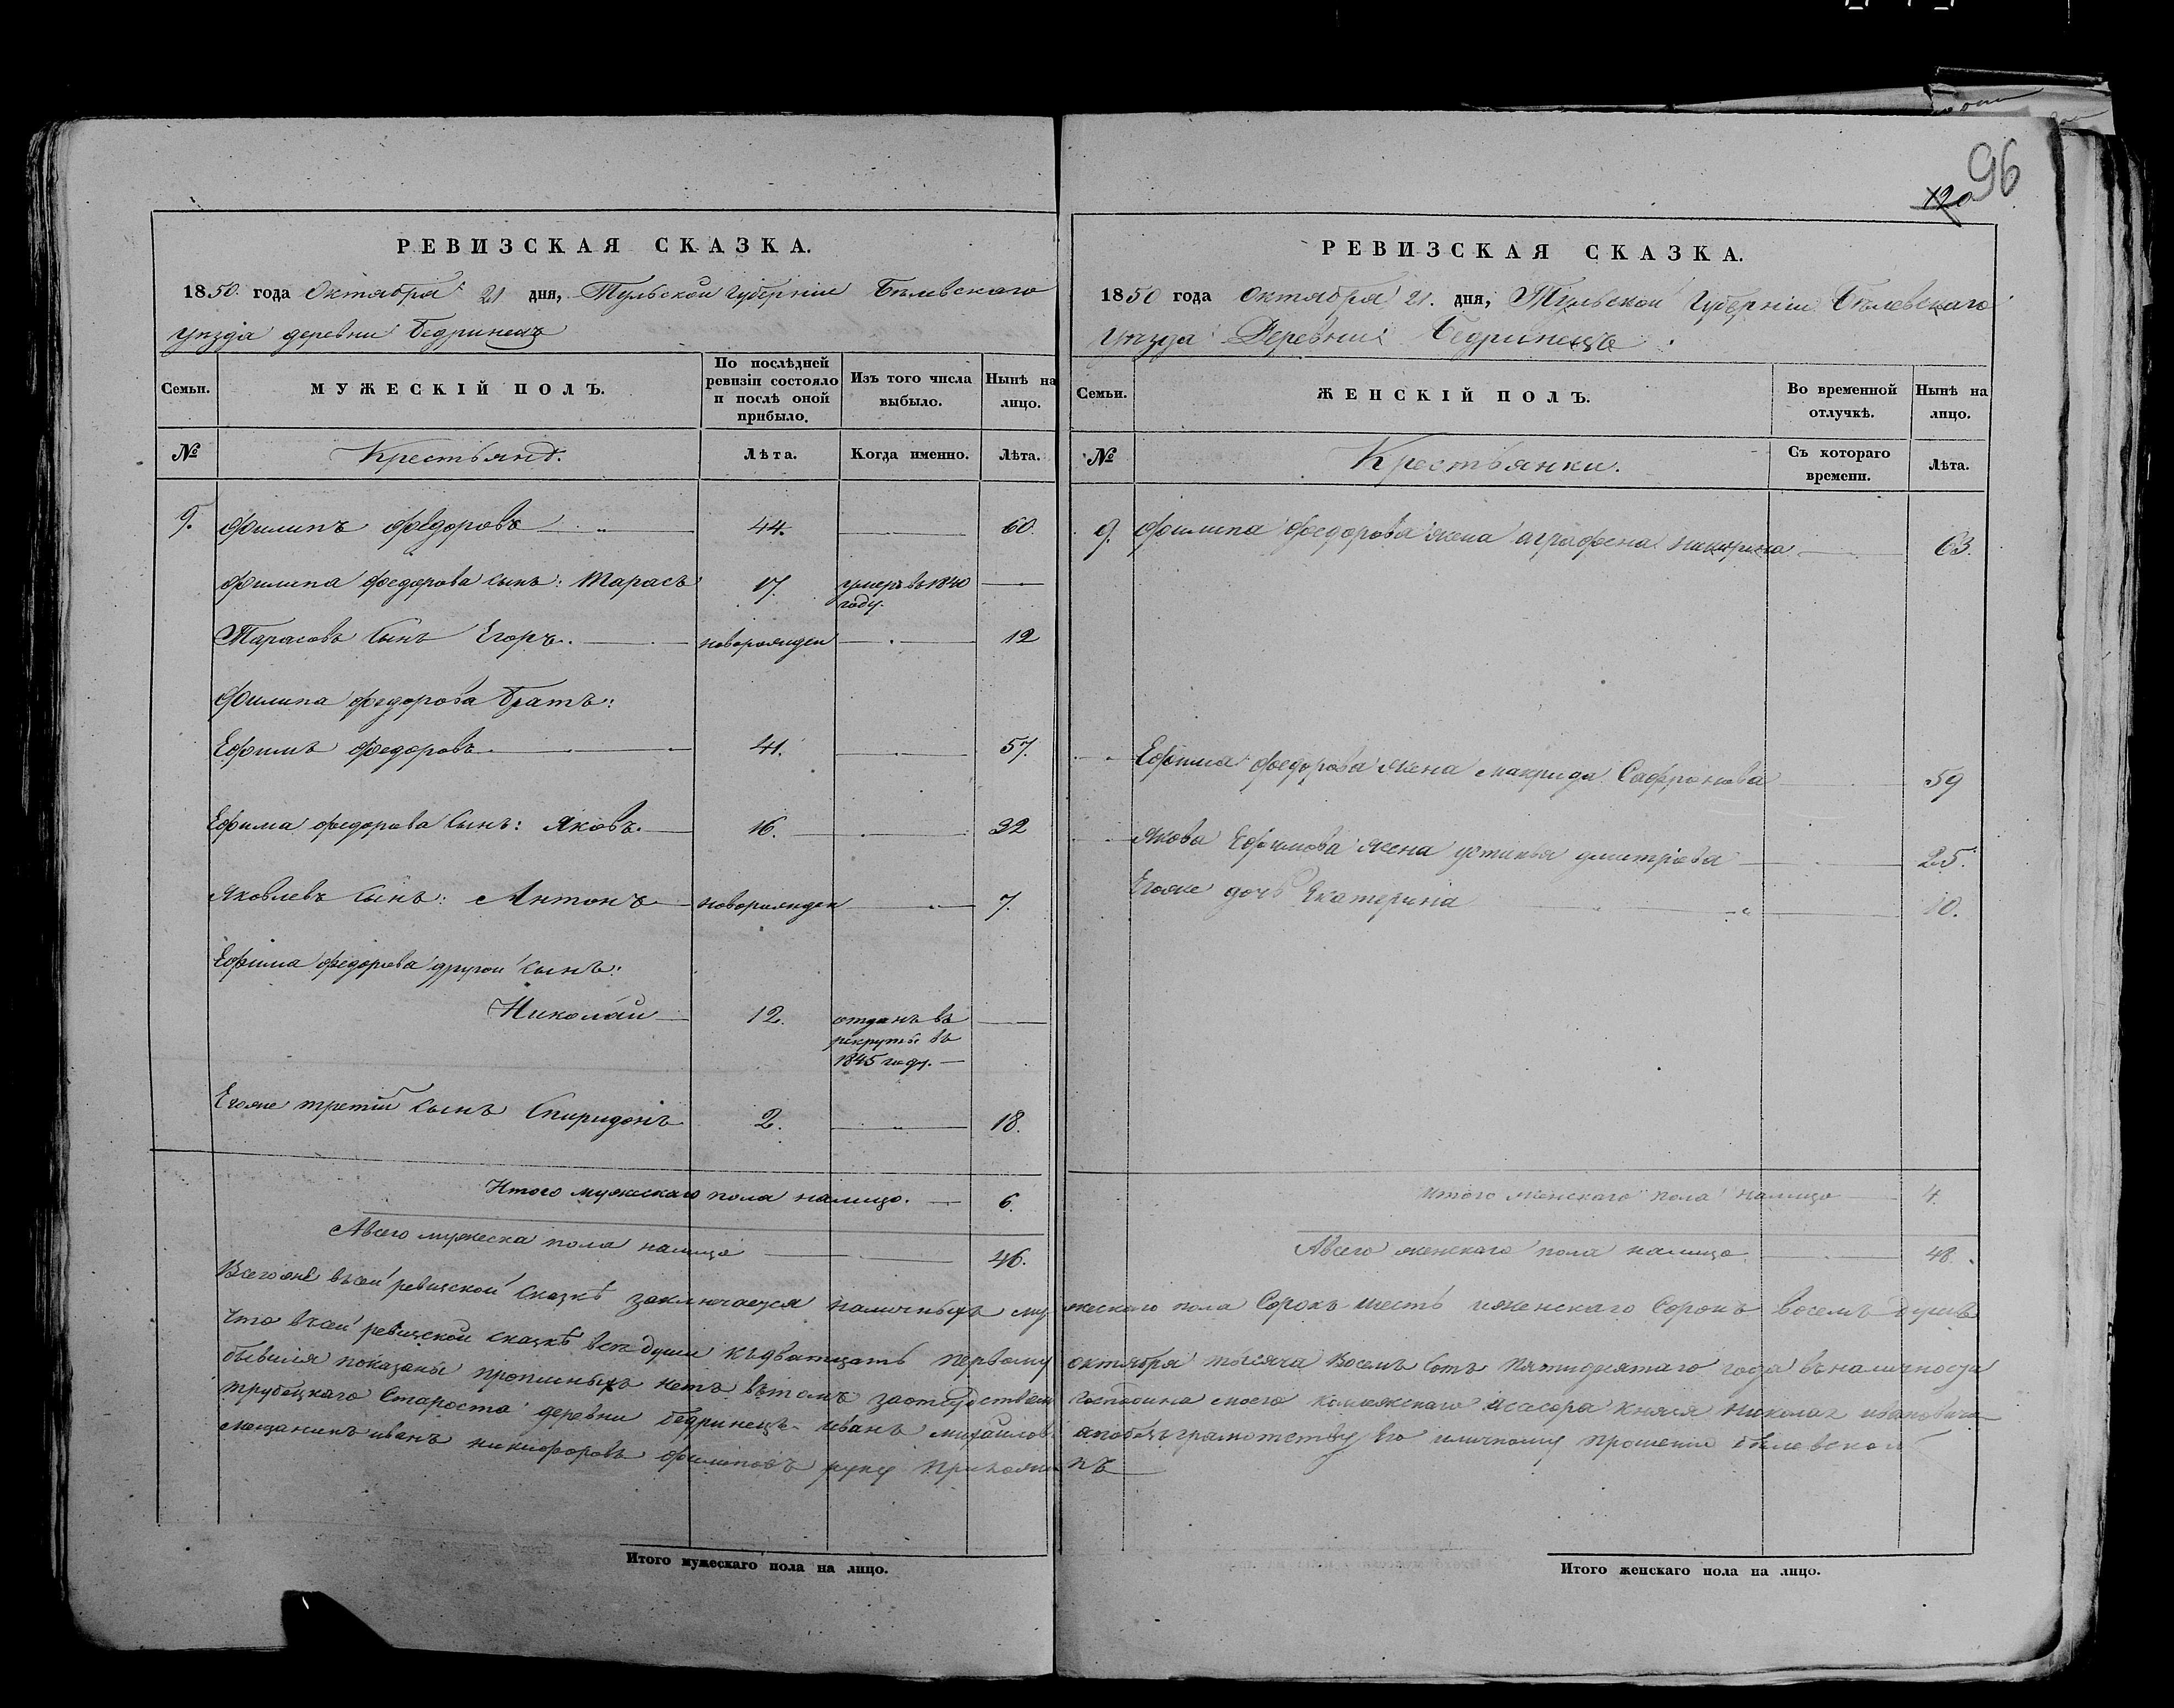 96
120
РЕВИЗСКАЯ СКАЗКА.
1850 года Октября 21 дня, Тульской Губернiи Бѣлевскаго
уѣзда деревни Бедринецъ
Семьи.
МУЖЕСКIЙ ПОЛЪ.
По послѣдней ревизiи состояло и послѣ оной прибыло.
Изъ того числа выбыло.
Нынѣ на лицо.
№
Крестьянѣ.
Лѣта.
Когда именно.
Лѣта.
9. Филипъ Федоровъ 44. 60.
Филипа Федорова сынъ: Тарасъ 17. умеръ въ 1840 году.
Тарасовъ сынъ Егоръ. новорожден 12
Филипа Федорова братъ:
Ефимъ Федоровъ 41. 57.
Ефима Федорова сынъ: Яковъ. 16. 32
Яковлевъ сынъ: Антонъ новорожден 7.
Ефима Федорова другой сынъ:
Николай 12. отданъ въ рекруты въ 1845 году.
Егоже третiй сынъ Спиридонъ 2. 18.
Итого мужескаго пола налицо. 6.
Авсего мужеска пола налицо 46.
РЕВИЗСКАЯ СКАЗКА.
1850 года Октября 21. дня, Тульской Губернiи Бѣлевскаго
уѣзда Деревни Бедринецъ.
Семьи.
ЖЕНСКIЙ ПОЛЪ.
Во временной отлучкѣ.
Нынѣ на лицо.
№
Крестьянки.
Съ котораго времени.
Лѣта.
9. Филипа Федорова жена аграфена 63.
Ефима Федорова жена макрида Сафронова 59
Якова Ефимова жена устинья дмитрiева 25.
Егоже дочь Екатерина 10.
итого женскаго пола налицо 4.
Авсего женскаго пола налицо. 48.
Всегоже въсей ревизской сказкѣ заключается наличныхъ мужескаго пола Сорокъ шесть иженскаго Сорокъ восемь душъ
Что всей ревизской сказкѣ всѣ души къдватцать первому октября тысяча восемь сотъ пятидесятаго года въналичности
бывшiя показаны прописныхъ нетъ вътомъ господина моего князя николая ивановича
трубецкаго Староста деревни бедринецъ иванъ михайловъ апобезграмотству Его иличному прошенiю бѣлевской
мещанинъ иванъ никифоровъ филиповъ руку приложилъ
Итого мужескаго пола на лицо.
Итого женскаго пола на лицо.